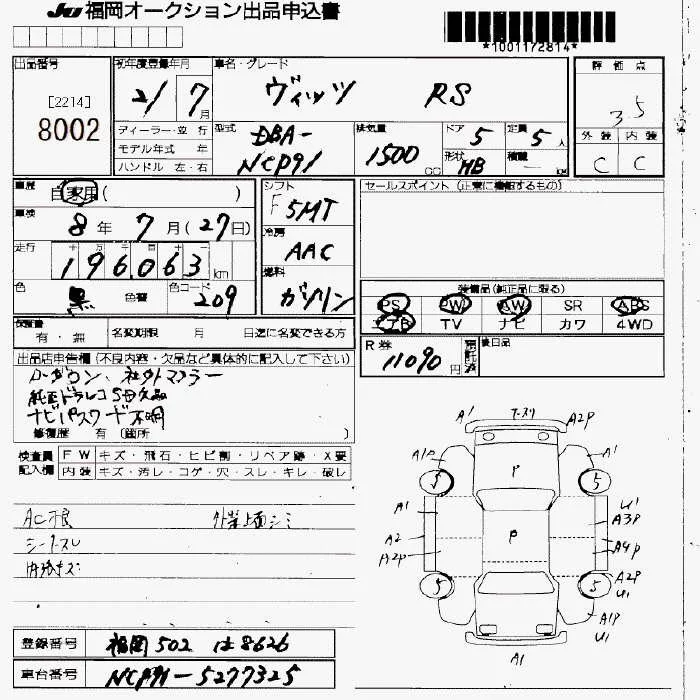 JU 福岡オークション出品申込書
*1001172814*
出品番号 初年度登録年月 車名・グレード 評価点
[2214] 8002 21/7月 ヴィッツ RS 3.5
ディーラー・並行 型式 DBA-NCP91 排気量 1500cc ドア 5 定員 5人 外装 内装
モデル年式 年 形状 HB 積載 C C
ハンドル 左・右
車歴 自家用( ) シフト F5MT セールスポイント (正常に機能するもの)
車検 8年7月(27日) 冷房 AAC
走行 十万千百十一 196063km 燃料 ガソリン
色 黒 色替 色コード 209 装備品(純正品に限る)
PS PW AW SR ABS
エアB TV ナビ カワ 4WD
保証書 有・無 名変期限 月 日迄に名変できる方 R券 11090円 預託済 後日品
出品店申告欄(不良内容・欠品など具体的に記入して下さい)
ローダウン、社外マフラー
純正ドラレコSD欠品
ナビパスワード不明
修復歴 有(箇所 )
検査員 FW キズ・飛石・ヒビ割・リペア跡・X要
記入欄 内装 キズ・汚レ・コゲ・穴・スレ・キレ・破レ
AC不良
シートスレ
内張キズ
A1 A2P
A1P A1
P
5 5
A1 U1
A3P
P
A2 A4P
A2P A2P
U1
5 5
A1P
U1
A1
登録番号 福岡 502 は 8626
車台番号 NCP91-5277325